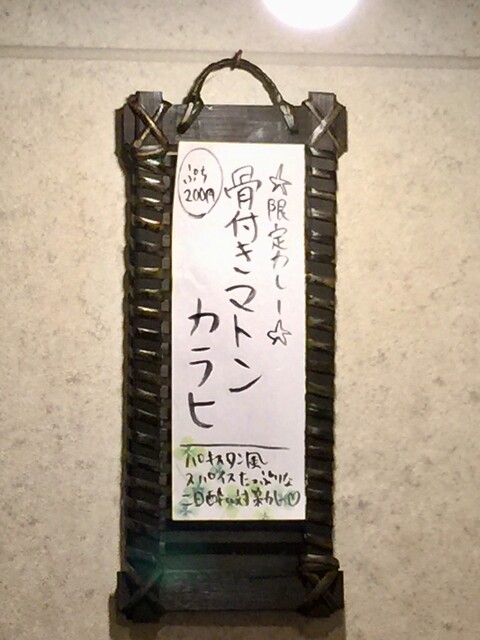 ☆限定カレー☆
骨付きマトン
カラヒ
ぷち
200円
パキスタン風
スパイスたっぷりな
二日酔い対策カレー♡